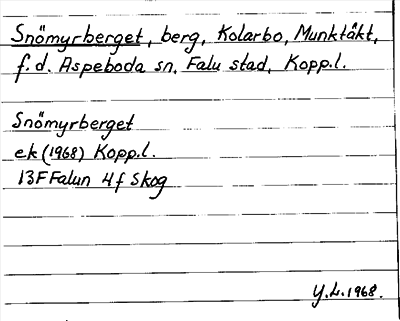 Snömyrberget, berg, Kolarbo, Munktäkt,
f.d. Aspeboda sn, Falu stad, Kopp.l.
Snömyrberget
ek (1968) Kopp.l.
13F Falun 4f Skog
Y.L. 1968.